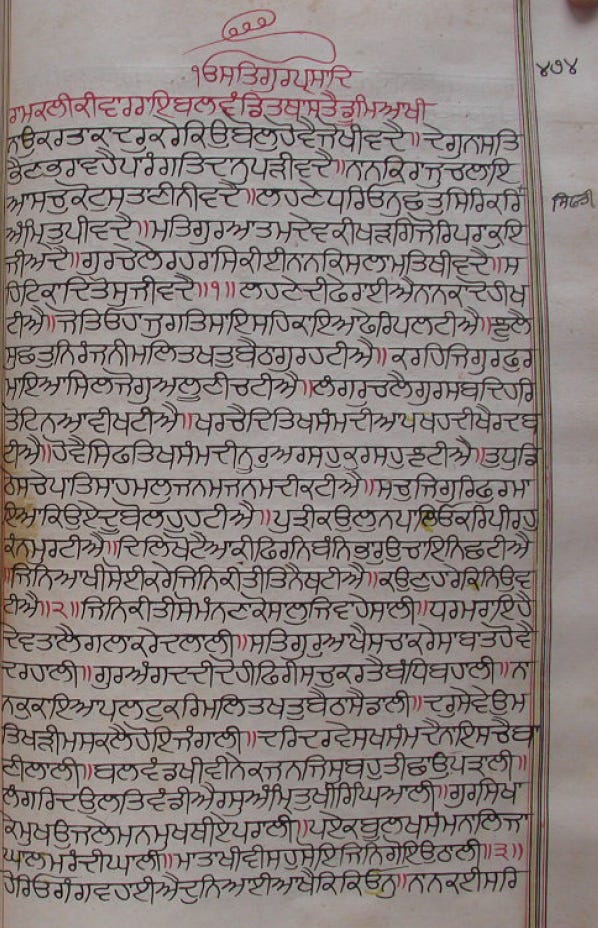 ੧ਓ ਸਤਿਗੁਰਪ੍ਰਸਾਦਿ
੪੭੪
ਰਾਮਕਲੀਕੀਵਾਰਰਾਇਬਲਵੰਡਿਤਥਾਸਤੈਡੂਮਿਆਖੀ
ਨਾਉਕਰਤਾਕਾਦਰੁਕਰੇਕਿਉਬੋਲੁਹੋਵੈਜੋਖੀਵਦੈ॥ਦੇਗੁਨਾਸਤਿ
ਭੈਣਭਰਾਵਹੈਪਾਰੰਗਤਿਦਾਨੁਪੜੀਵਦੈ॥ਨਾਨਕਿਰਾਜੁਚਲਾਇ
ਆਸਚੁਕੋਟੁਸਤਾਣੀਨੀਵਦੈ॥ਲਹਣੇਧਰਿਓਨੁਛਤੁਸਿਰਿਕਰਿ
ਅੰਮ੍ਰਿਤੁਪੀਵਦੈ॥ਮਤਿਗੁਰਆਤਮਦੇਵਕੀਖੜਗਿਜੋਰਿਪਰਾਕੁਇ
ਜੀਅਦੈ॥ਗੁਰਚੇਲੇਰਹਰਾਸਿਕੀਈਨਾਨਕਿਸਲਾਮਤਿਥੀਵਦੈ॥ਸ
ਹਿਟਿਕਾਦਿਤੋਸੁਜੀਵਦੈ॥੧॥ਲਹਣੇਦੀਫੇਰਾਈਐਨਾਨਕਾਦੋਹੀਖ
ਟੀਐ॥ਜੋਤਿਓਹਾਜੁਗਤਿਸਾਇਸਹਿਕਾਇਆਫੇਰਿਪਲਟੀਐ॥ਝੁਲੈ
ਸੁਛਤੁਨਿਰੰਜਨੀਮਲਿਤਖਤੁਬੈਠਾਗੁਰਹਟੀਐ॥ਕਰਹਿਜਿਗੁਰਫੁਰ
ਮਾਇਆਸਿਲਜੋਗੁਅਲੂਣੀਚਟੀਐ॥ਲੰਗਰੁਚਲੈਗੁਰਸਬਦਿਹਰਿ
ਤੋਟਿਨਆਵੀਖਟੀਐ॥ਖਰਚੇਦਿਤਿਖਸੰਮਦੀਆਪਖਹਦੀਖੈਰਿਦਬ
ਟੀਐ॥ਹੋਵੈਸਿਫਤਿਖਸੰਮਦੀਨੂਰੁਅਰਸਹੁਕੁਰਸਹੁਝਟੀਐ॥ਤੁਧੁਡਿ
ਠੇਸਚੇਪਾਤਿਸਾਹਮਲੁਜਨਮਜਨਮਦੀਕਟੀਐ॥ਸਚੁਜਿਗੁਰਿਫੁਰਮਾ
ਇਆਕਿਉਏਦੂਬੋਲਹੁਹਟੀਐ॥ਪੁਤ੍ਰੀਕਉਲੁਨਪਾਲਿਓਕਰਿਪੀਰਹੁ
ਕੰਨਮੁਰਟੀਐ॥ਦਿਲਿਖੋਟੈਆਕੀਫਿਰਨਿਬੰਨਿਭਾਰੁਉਚਾਇਨਿਛਟੀਐ
॥ਜਿਨਿਆਖੀਸੋਈਕਰੇਜਿਨਿਕੀਤੀਤਿਨੈਥਟੀਐ॥ਕਉਣੁਹਾਰੇਕਿਨਿਉਵ
ਟੀਐ॥੨॥ਜਿਨਿਕੀਤੀਸੋਮੰਨਣਾਕੋਸਾਲੁਜਿਵਾਹੇਸਾਲੀ॥ਧਰਮਰਾਇਹੈ
ਦੇਵਤਾਲੈਗਲਾਕਰੇਦਲਾਲੀ॥ਸਤਿਗੁਰੁਆਖੈਸਚਾਕਰੇਸਾਬਾਤਹੋਵੈ
ਦਰਹਾਲੀ॥ਗੁਰਅੰਗਦਦੀਦੋਹੀਫਿਰੀਸਚੁਕਰਤੈਬੰਧਿਬਹਾਲੀ॥ਨਾ
ਨਕੁਕਾਇਆਪਲਟੁਕਰਿਮਲਿਤਖਤੁਬੈਠਾਸੈਡਾਲੀ॥ਦਰੁਸੇਵੇਉਮ
ਤਿਖੜੀਮਸਕਲੈਹੋਇਜੰਗਾਲੀ॥ਦਰਿਦਰਵੇਸੁਖਸੰਮਦੈਨਾਇਸਚੈਬਾ
ਣੀਲਾਲੀ॥ਬਲਵੰਡਖੀਵੀਨੇਕਜਨਜਿਸੁਬਹੁਤੀਛਾਉਪਤ੍ਰਾਲੀ॥
ਲੰਗਰਿਦਉਲਤਿਵੰਡੀਐਰਸੁਅੰਮ੍ਰਿਤੁਖੀਰਿਘਿਆਲੀ॥ਗੁਰਸਿਖਾ
ਕੇਮੁਖਉਜਲੇਮਨਮੁਖਥੀਏਪਰਾਲੀ॥ਪਏਕਬੂਲੁਖਸੰਮਨਾਲਿਜਾ
ਘਾਲਮਰਦੀਘਾਲੀ॥ਮਾਤਾਖੀਵੀਸਹੁਸੋਇਜਿਨਿਗੋਇਉਠਾਲੀ॥੩॥
ਹੋਰਿਓਗੰਗਵਹਾਈਐਦੁਨਿਆਈਆਖੈਕਿਕਿਓਨੁ॥ਨਾਨਕਈਸਰਿ